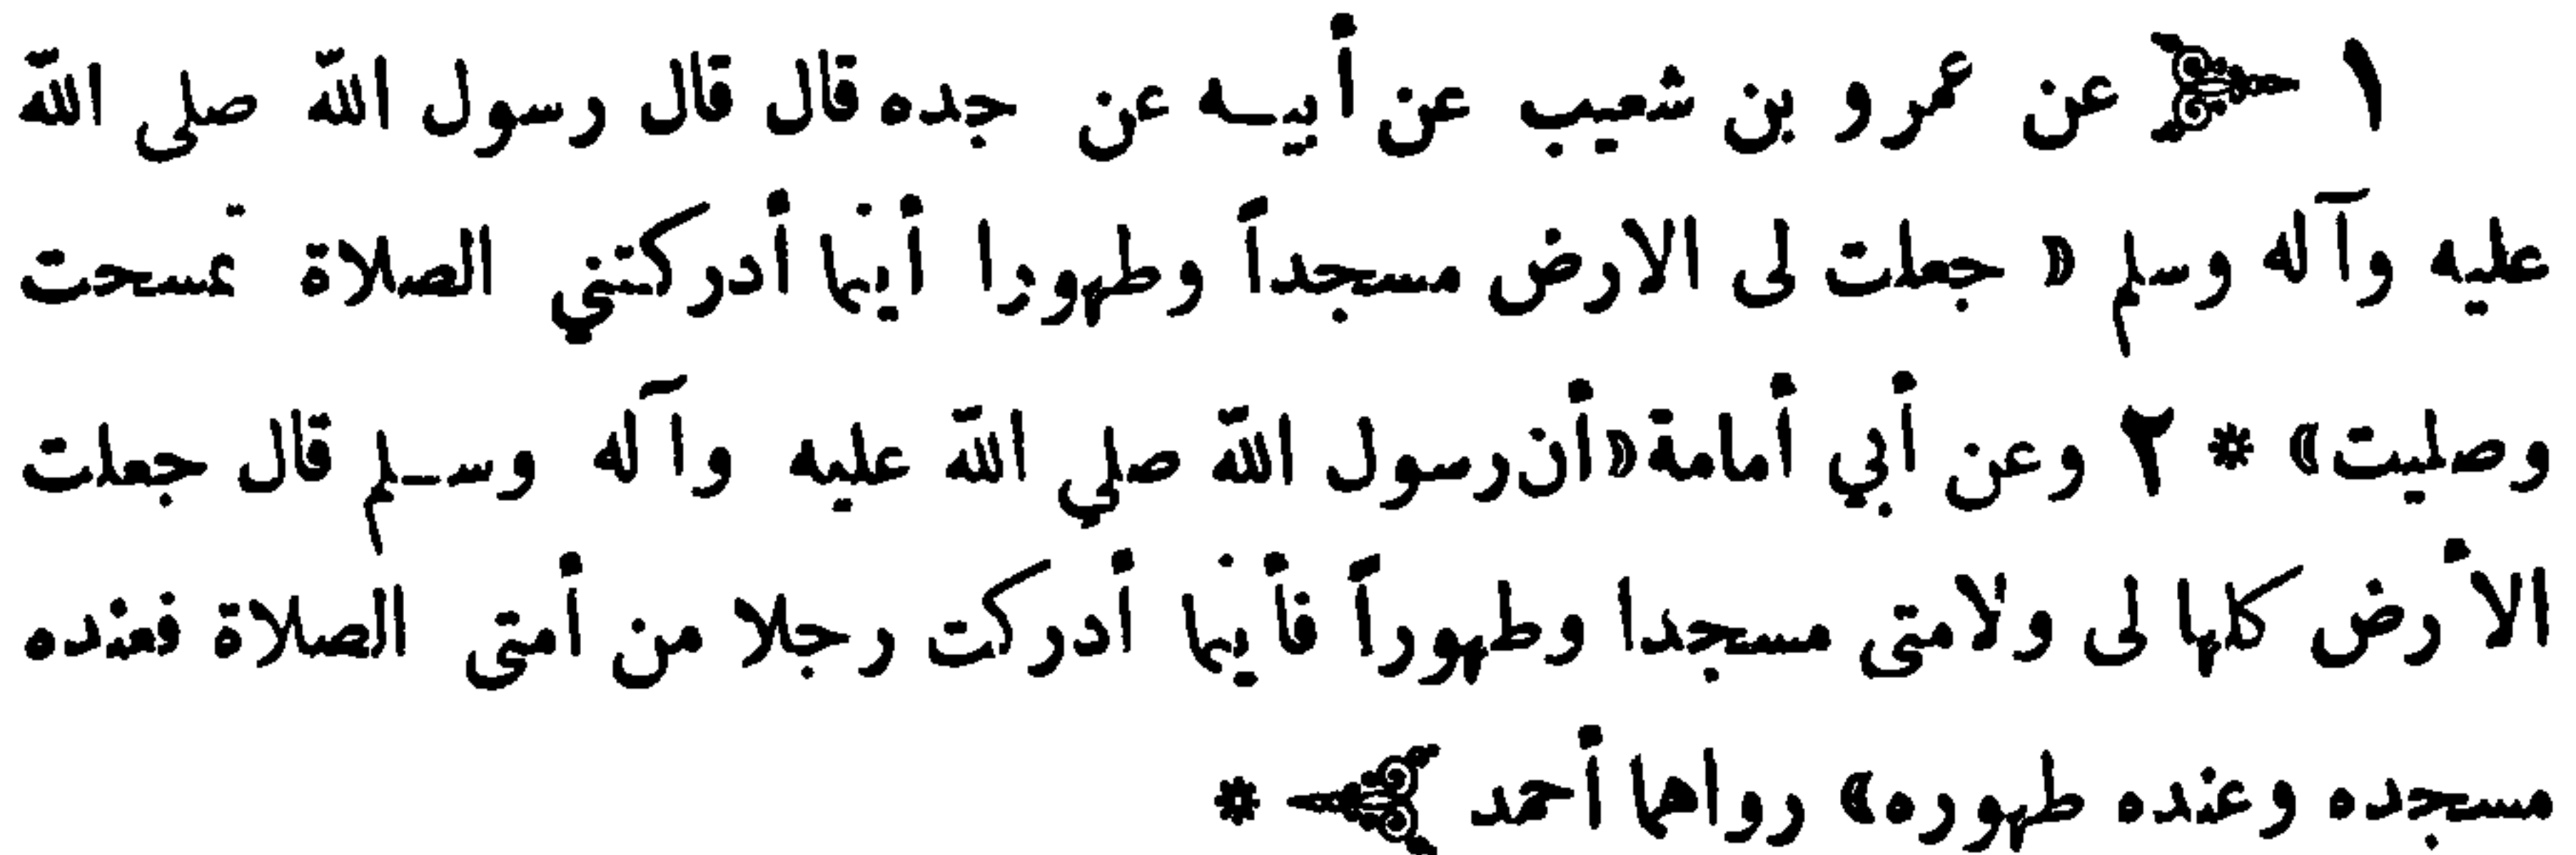 ١ ﴿ عن عمرو بن شعيب عن أبيـه عن جده قال قال رسول اللّه صلى اللّه
عليه وآله وسلم « جعلت لى الارض مسجداً وطهورا أينما أدركتني الصلاة تمسحت
وصليت» * ٢ وعن أبي أمامة «أن رسول اللّه صلي اللّه عليه وآله وسـلم قال جعلت
الأرض كلها لى ولامتى مسجدا وطهوراً فأينما أدركت رجلا من أمتى الصلاة فعنده
مسجده وعنده طهوره» رواهما أحمد ﴾ *